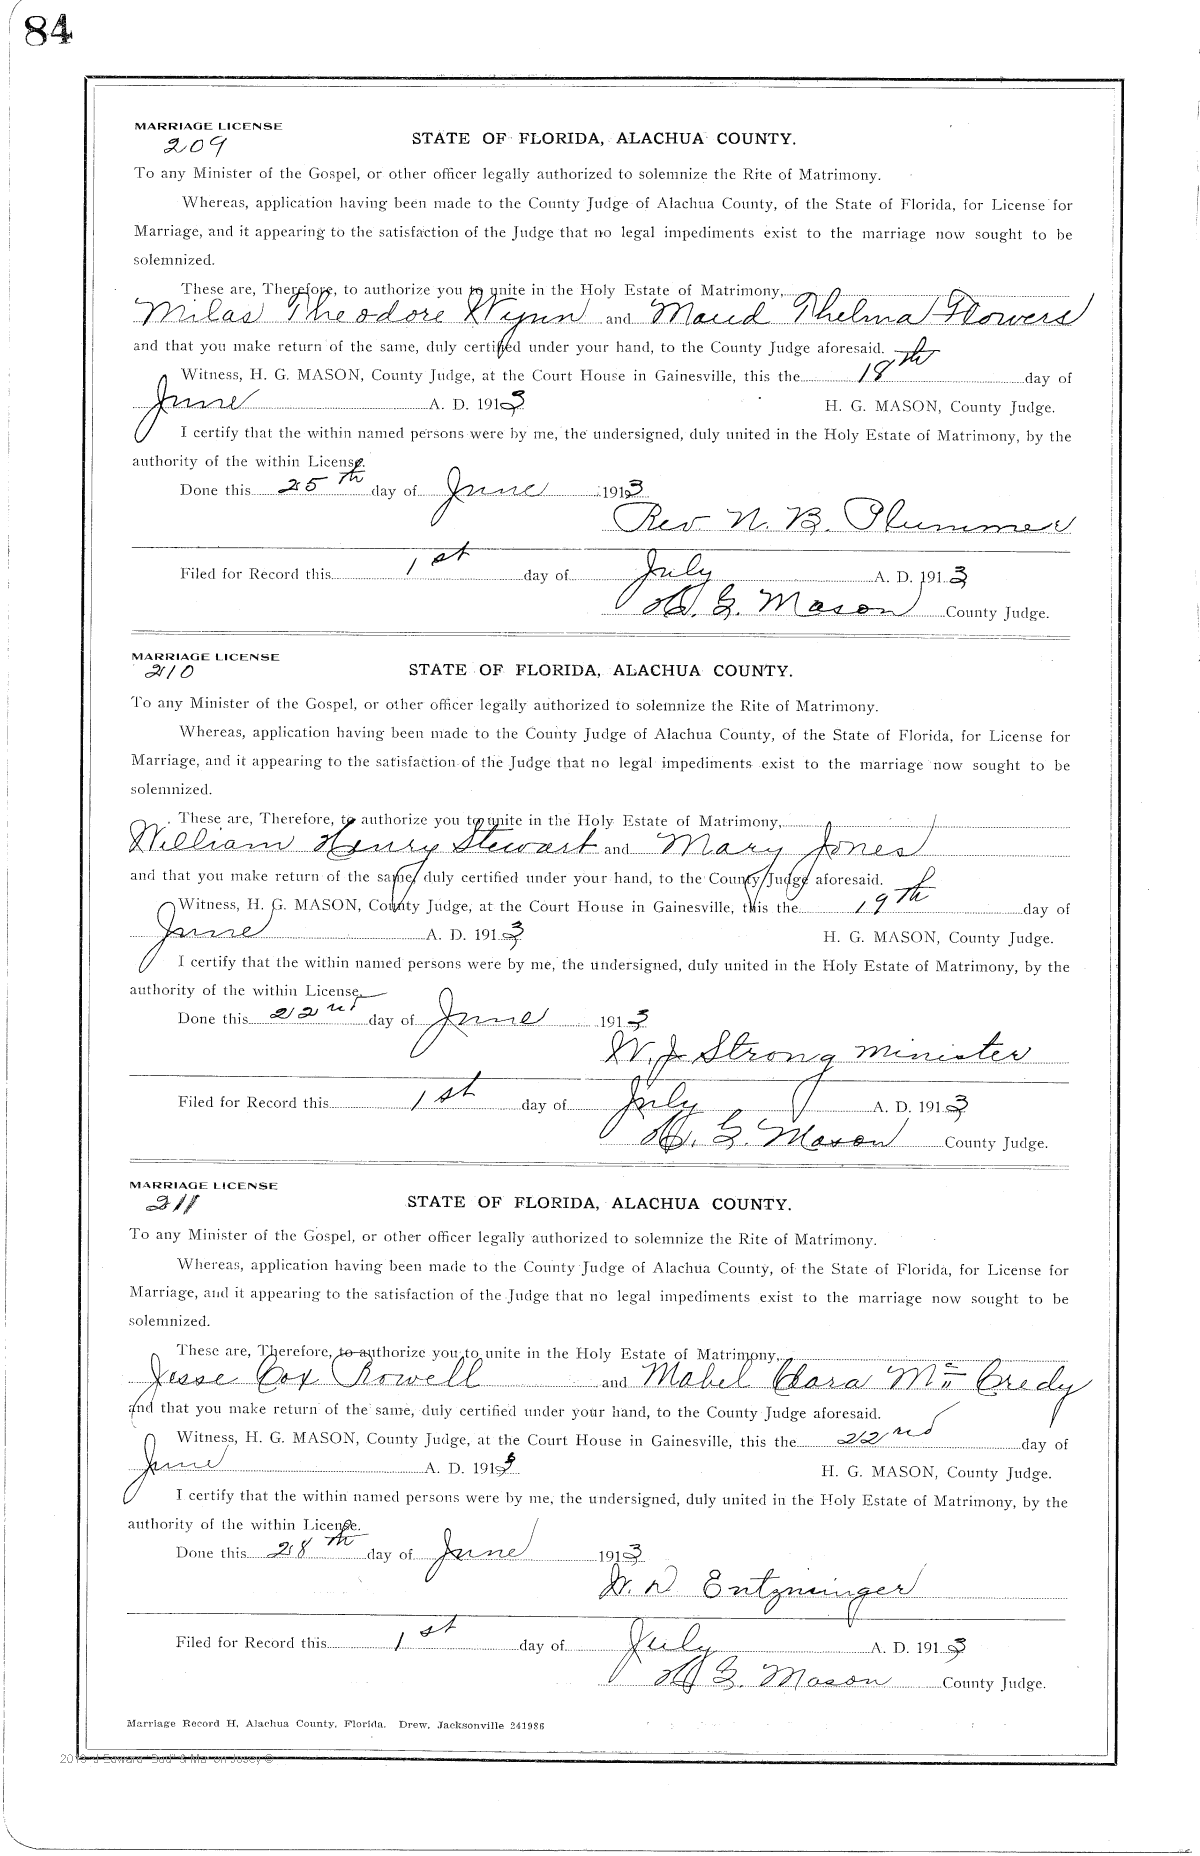 84
MARRIAGE LICENSE
209
STATE OF FLORIDA, ALACHUA COUNTY.
To any Minister of the Gospel, or other officer legally authorized to solemnize the Rite of Matrimony.
Whereas, application having been made to the County Judge of Alachua County, of the State of Florida, for License for
Marriage, and it appearing to the satisfaction of the Judge that no legal impediments exist to the marriage now sought to be
solemnized.
These are, Therefore, to authorize you to unite in the Holy Estate of Matrimony,
Milas Theodore Wynn and Maud Thelma Flowers
and that you make return of the same, duly certified under your hand, to the County Judge aforesaid.
Witness, H. G. MASON, County Judge, at the Court House in Gainesville, this the 18th day of
June A. D. 1913 H. G. MASON, County Judge.
I certify that the within named persons were by me, the undersigned, duly united in the Holy Estate of Matrimony, by the
authority of the within License.
Done this 25th day of June 1913
Rev. N. B. Plummer
Filed for Record this 1st day of July A. D. 1913
H. G. Mason County Judge.
MARRIAGE LICENSE
210
STATE OF FLORIDA, ALACHUA COUNTY.
To any Minister of the Gospel, or other officer legally authorized to solemnize the Rite of Matrimony.
Whereas, application having been made to the County Judge of Alachua County, of the State of Florida, for License for
Marriage, and it appearing to the satisfaction of the Judge that no legal impediments exist to the marriage now sought to be
solemnized.
These are, Therefore, to authorize you to unite in the Holy Estate of Matrimony,
William Henry Stewart and Mary Jones
and that you make return of the same, duly certified under your hand, to the County Judge aforesaid.
Witness, H. G. MASON, County Judge, at the Court House in Gainesville, this the 19th day of
June A. D. 1913 H. G. MASON, County Judge.
I certify that the within named persons were by me, the undersigned, duly united in the Holy Estate of Matrimony, by the
authority of the within License.
Done this 22nd day of June 1913
W. J. Strong minister
Filed for Record this 1st day of July A. D. 1913
H. G. Mason County Judge.
MARRIAGE LICENSE
211
STATE OF FLORIDA, ALACHUA COUNTY.
To any Minister of the Gospel, or other officer legally authorized to solemnize the Rite of Matrimony.
Whereas, application having been made to the County Judge of Alachua County, of the State of Florida, for License for
Marriage, and it appearing to the satisfaction of the Judge that no legal impediments exist to the marriage now sought to be
solemnized.
These are, Therefore, to authorize you to unite in the Holy Estate of Matrimony,
Jesse Cox Rowell and Mabel Clara Mc Credy
and that you make return of the same, duly certified under your hand, to the County Judge aforesaid.
Witness, H. G. MASON, County Judge, at the Court House in Gainesville, this the 22nd day of
June A. D. 1913 H. G. MASON, County Judge.
I certify that the within named persons were by me, the undersigned, duly united in the Holy Estate of Matrimony, by the
authority of the within License.
Done this 28th day of June 1913
W. D Entzminger
Filed for Record this 1st day of July A. D. 1913
H G. Mason County Judge.
Marriage Record H, Alachua County, Florida. Drew, Jacksonville 241986